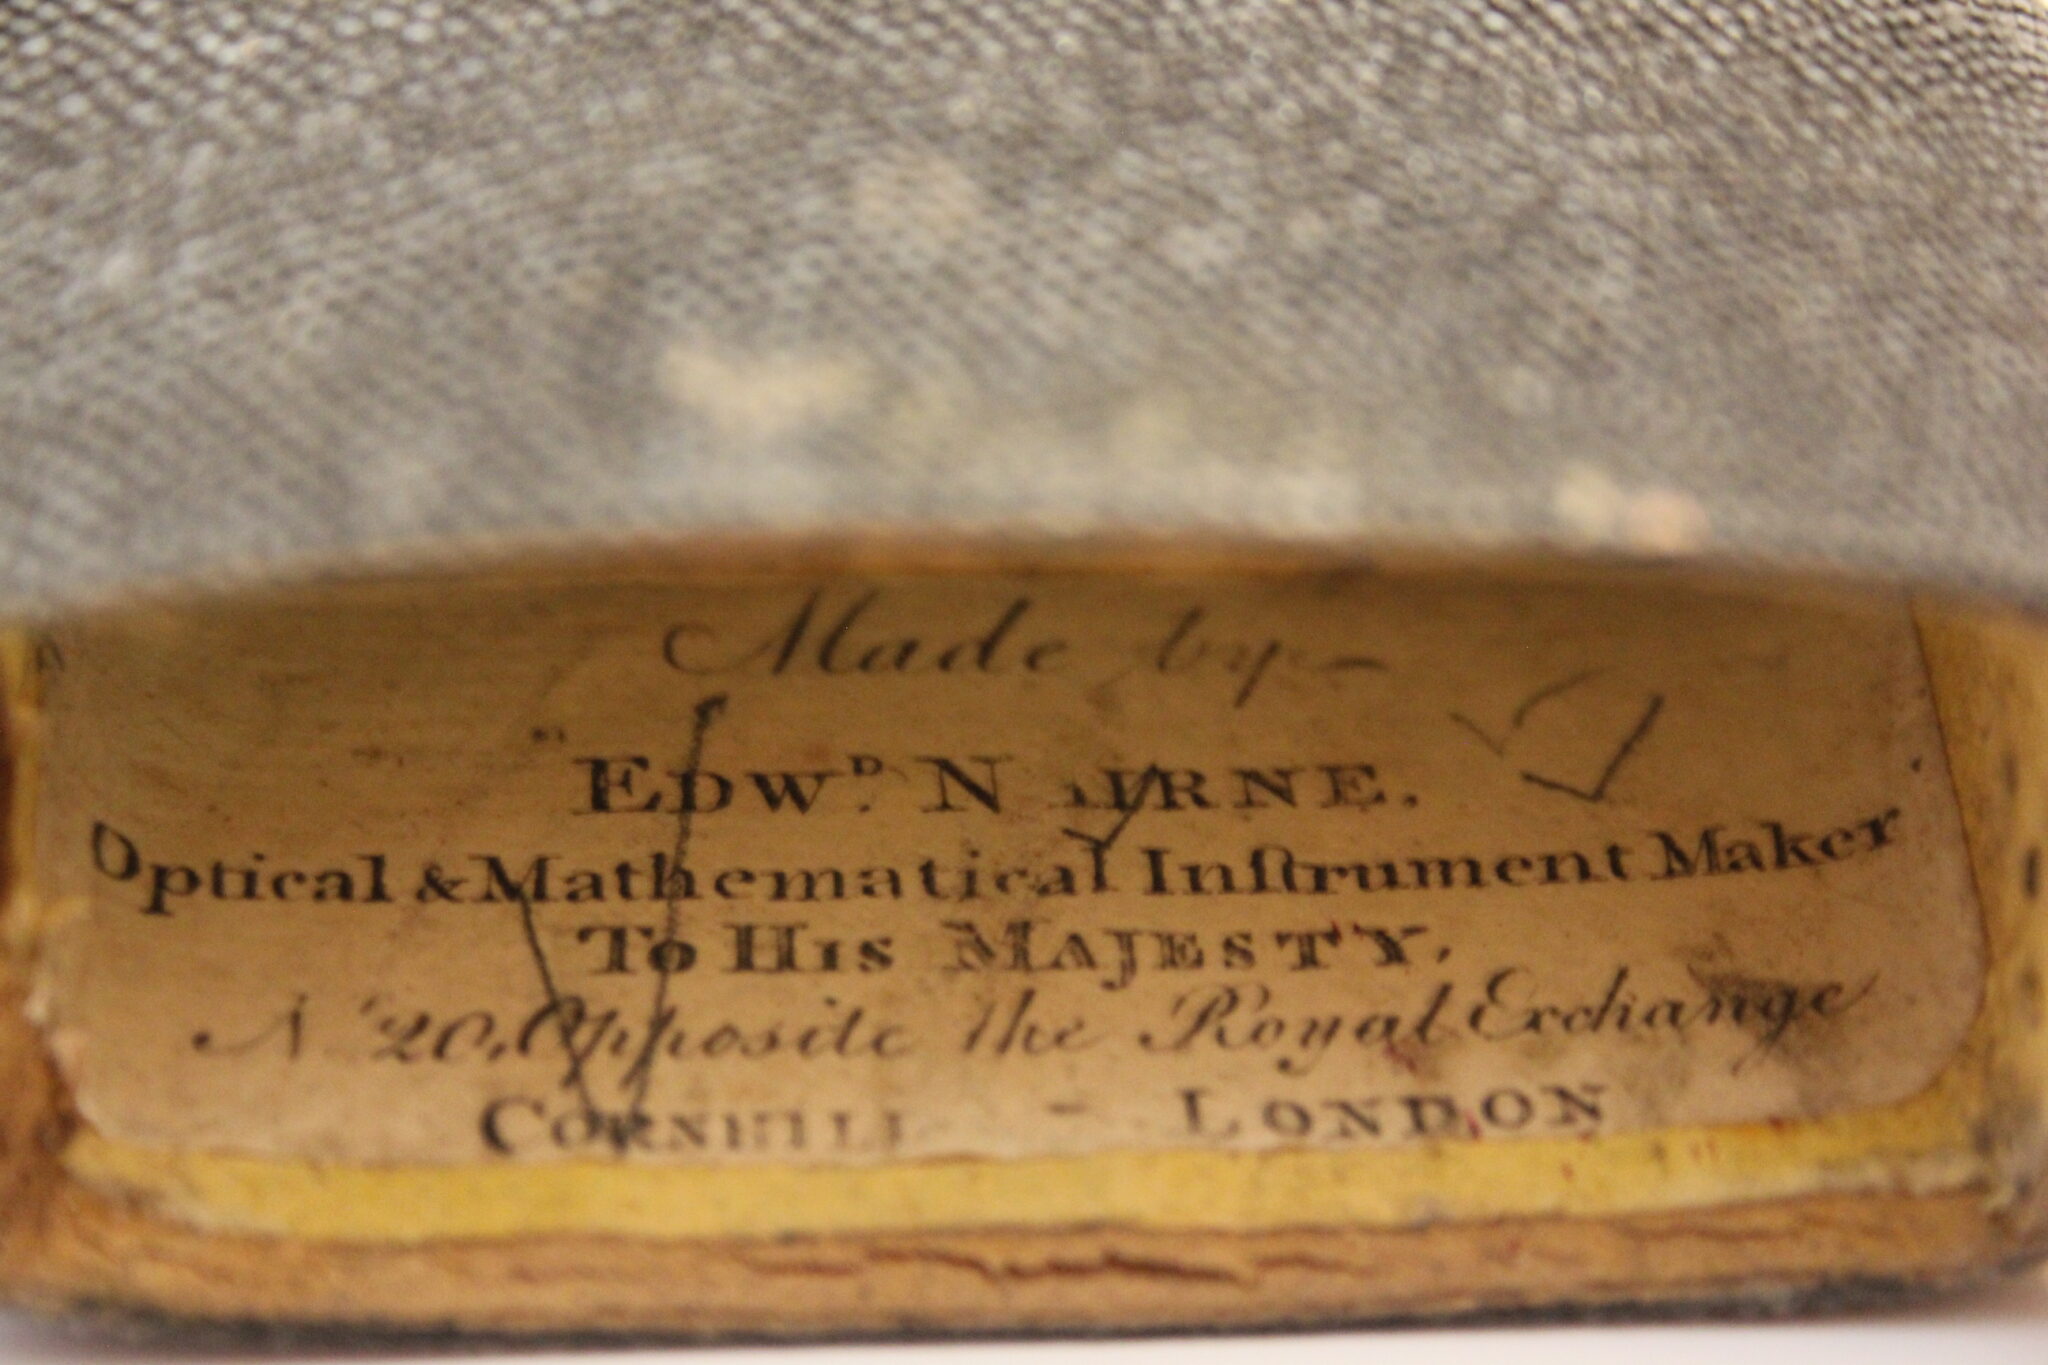 Made by
EDWᴰ. NAIRNE.
Optical & Mathematical Inſtrument Maker
To HIS MAJESTY,
Nº 20, Opposite the Royal Exchange
CORNHILL - LONDON